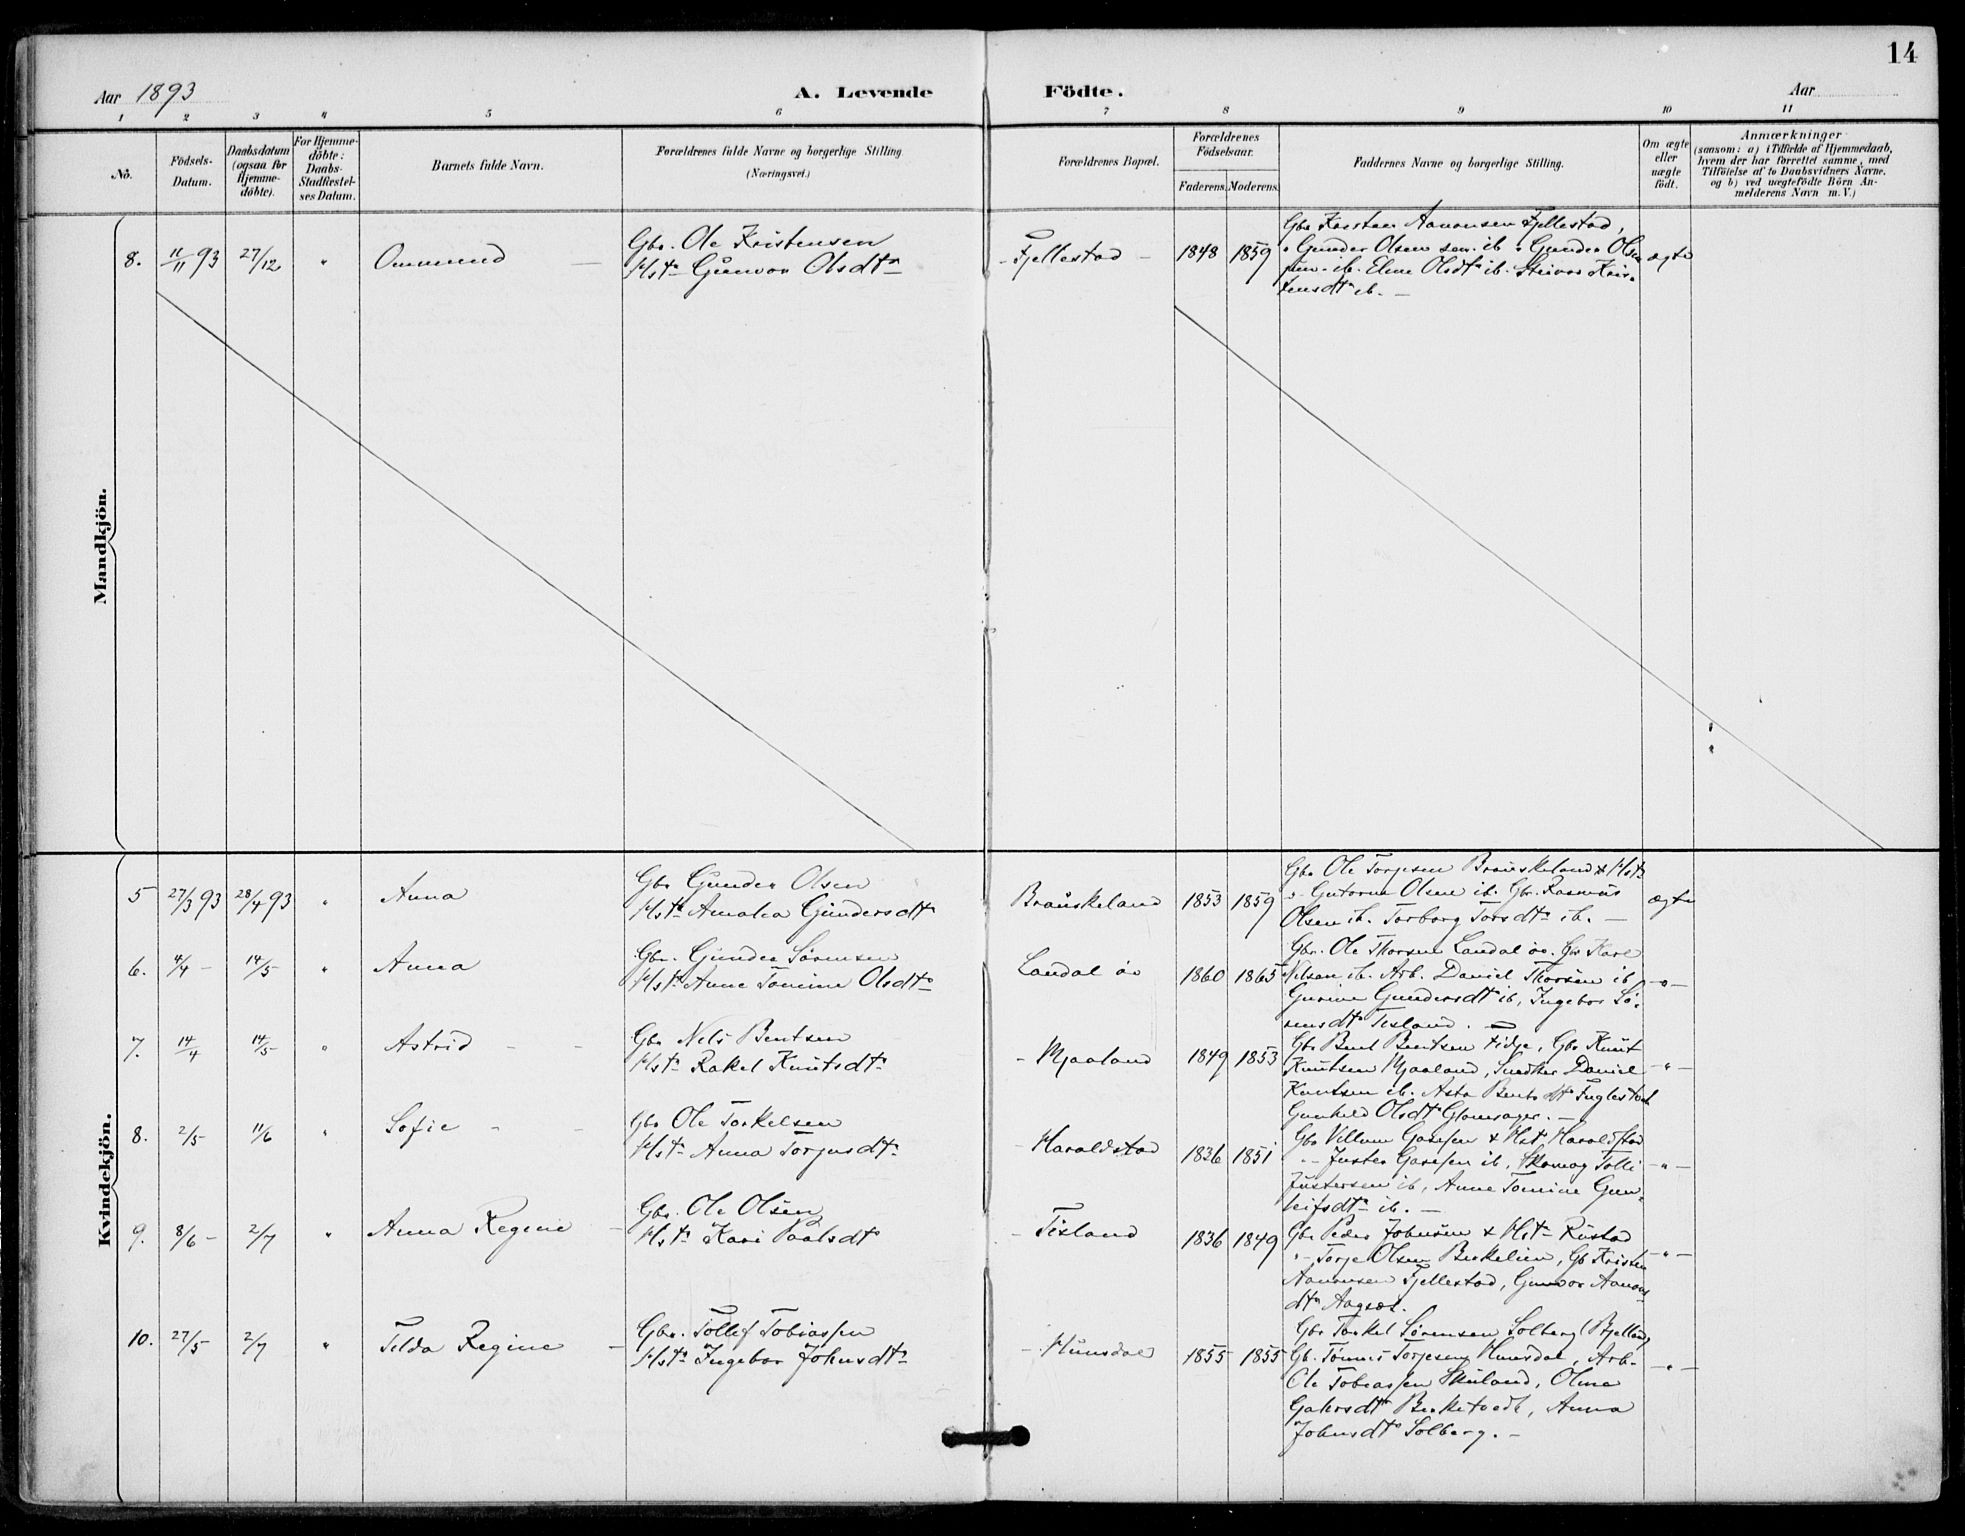 14
Aar 1893
A. Levende Födte.
Aar
1 2 3 4 5 6 7 8 9 10 11
No.
Födsels-Datum.
Daabsdatum (ogsaa for Hjemme-döbte).
For Hjemme-döbte: Daabs-Stadfæstel-ses Datum.
Barnets fulde Navn.
Forældrenes fulde Navne og borgerlige Stilling
(Næringsvei.)
Forældrenes Bopæl.
Forældrenes Födselsaar.
Faderens. Moderens.
Faddernes Navne og borgerlige Stilling.
Om ægte eller uægte födt.
Anmærkninger
(saasom: a) i Tilfælde af Hjemmedaab,
hvem der har forrettet samme, med
Tilföielse af to Daabsvidners Navne.
og b) ved uægtefödte Börn An-
melderens Navn m. V.)
Mandkjön.
8. 11/11 93 27/12 " Ommund —
Gbr. Ole Kristensen
Hst. Gunvor Olsdtr
- Fjellestad - 1848 1859
Gbr Karsten Aanonsen Fjellestad,
" Gunder Olsen sen. ib " Gunder Olsen
jun. ib. Eline Olsdtr ib. Steivor Kris-
tensdtr ib. —
ægte
Kvindekjön.
5 27/3 93 28/4 93 " Anna
Gbr Gunder Olsen
Hstr Amalia Gundersdtr
Brauskeland 1853 1859
Gbr Ole Torjesen Brauskeland & Hstr
" Gutorm Olsen ib. Gbr. Rasmus
Olsen ib. Torborg Torsdtr ib. —
ægte
6. 4/4 - 14/5 " Anna
Gbr. Gunder Sørensen
Hstr Anne Tomine Olsdtr
Landal øv 1860 1865
Gbr. Ole Thorsen Landal øv. Gbr Karl
Nilsen ib. Arb. Daniel Thorsen ib
Gurine Gundersdtr ib, Ingebor Sø-
rensdtr Tisland. —
-"-
7. 14/4 14/5 " Astrid - -
Gbr Nels Bentsen
Hstr Rakel Knutsdtr
- Mjaaland 1849 1853
Gbr Bent Bentsen Fidje, Gbr Knut
Knutsen Mjaaland, Snedker Daniel
Knutsen ib. Asta Bentsdtr Fuglestvedt
Gunhild Olsdtr Glomsager. —
-"-
8. 2/5 11/6 " Sofie - -
Gbr Ole Torkelsen
Hstr Anna Torjusdtr
- Haraldstad 1836 1851
Gbr Villum & Hst. Haraldstad
"- ib, Tolli
ib, Anne Tomine Gun-
leifsdtr ib. —
-"-
9. 8/6 - 2/7 " Anna Regine -
Gbr. Ole Olsen
Hstr Kari Paalsdtr
- Tisland 1836 1849
Gbr Peder Johnsen & Hstr Rustad
"- Torje Olsen Birkelien, Gb Kristen
Aanonsen Fjellestad, Gunvor Aanons-
dtr
-"-
10. 27/5 2/7 " Tilda Regine -
Gbr. Tollef Tobiassen
Hstr Ingebor Johnsdtr
- Hunsdal 1855 1855
Gbr Torkel Sørensen Solberg (Bjelland)
Gb. Tønnes Torjesen Hunsdal, Arb.
Ole Tobiassen Skuland, Oline
Birketvedt, Anna
Johnsdtr Solberg. -
-"-